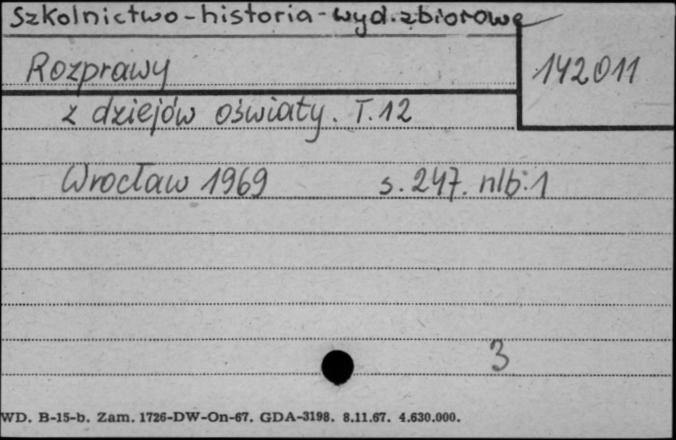 Szkolnictwo-historia-wyd.zbiorowe
Rozprawy
142011
z dziejów oświaty. T.12
Wrocław 1969 s. 247. nlb. 1
3
WD. B-15-b. Zam. 1726-DW-On-67. GDA-3198. 8.11.67. 4.630.000.